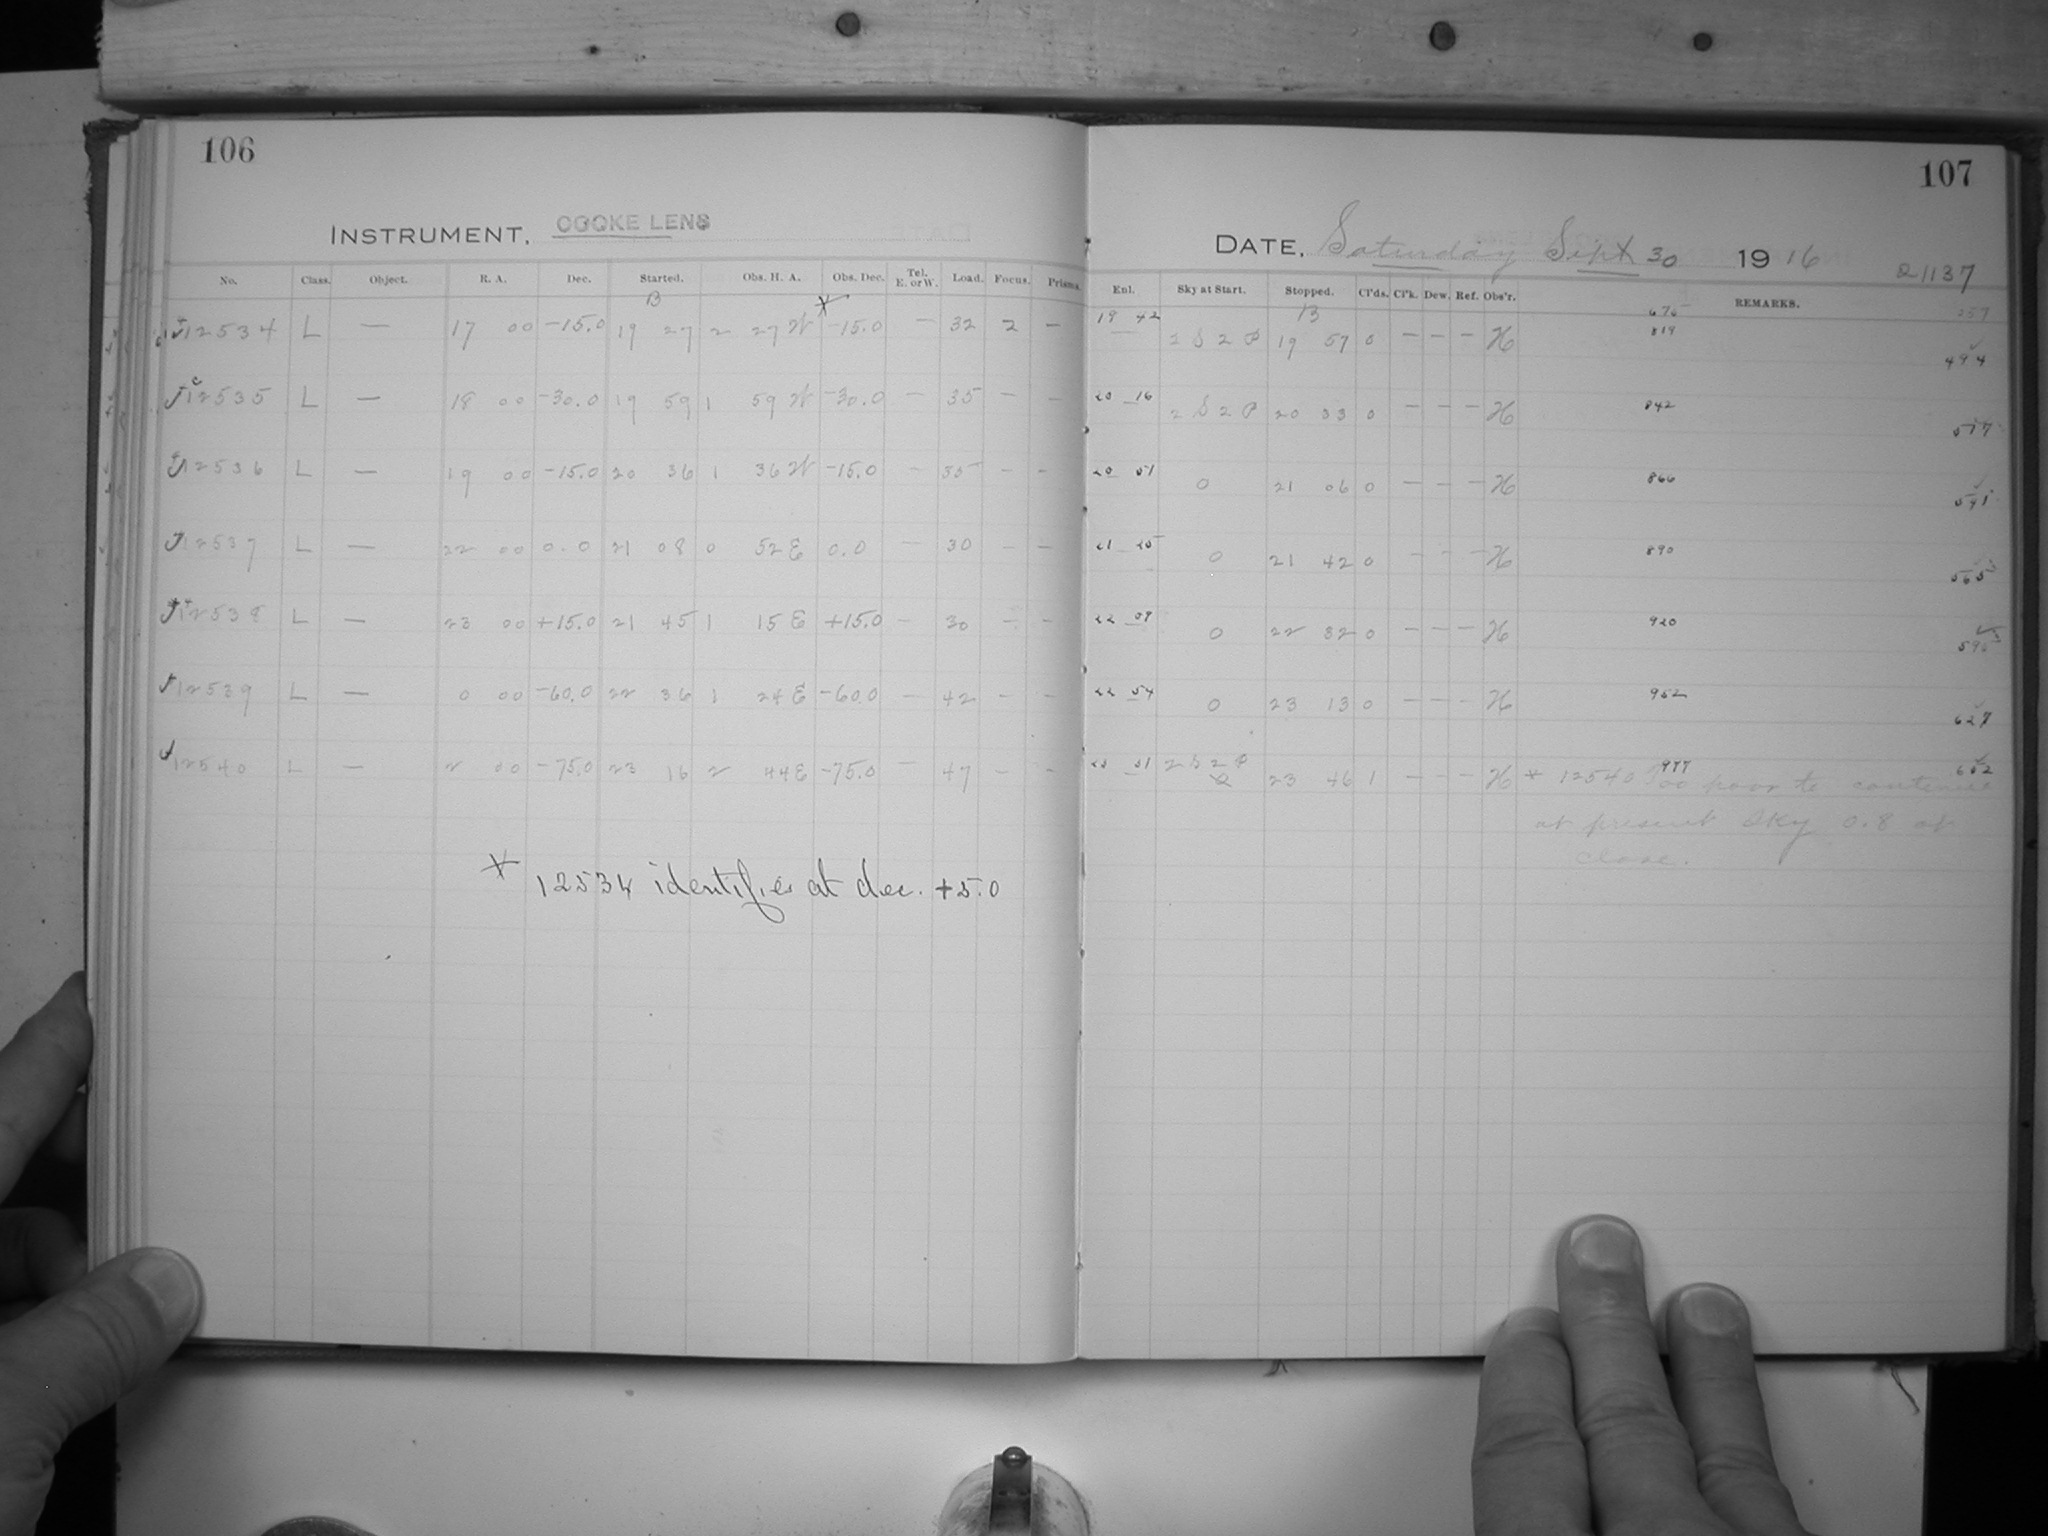 106
INSTRUMENT, COOKE LENS
No. Class. Object. R. A. Dec. Started. Obs. H. A. Obs. Dec. Tel. E. or W. Load. Focus. Prisms.
B *
12534 L — 17 00 -15.0 19 27 2 27 W -15.0 — 32 2 —
12535 L — 18 00 -30.0 19 59 1 59 W -30.0 — 35 — —
12536 L — 19 00 -15.0 20 36 1 36 W -15.0 — 35 — —
12537 L — 22 00 0.0 21 08 0 52 E 0.0 — 30 — —
12538 L — 23 00 +15.0 21 45 1 15 E +15.0 — 30 — —
12539 L — 0 00 -60.0 22 36 1 24 E -60.0 — 42 — —
12540 L — 2 00 -75.0 23 16 2 44 E -75.0 — 47 — —
* 12534 identifies at dec. +5.0
107
DATE, Saturday Sept 30 1916
21137
Enl. Sky at Start. Stopped. Cl'ds. Cl'k. Dew. Ref. Obs'r. REMARKS.
13
19 42 2 S 2 P 19 57 0 — — — H 819 494
20 16 2 S 2 P 20 33 0 — — — H 842 517
20 51 0 21 06 0 — — — H 866 541
21 25 0 21 42 0 — — — H 890 565
22 09 0 22 32 0 — — — H 920 595
22 54 0 23 13 0 — — — H 952 627
23 31 2 S 2 P 23 46 1 — — — H 977 652
* 12540 Too poor to continue
at present Sky 0.8 at
close.